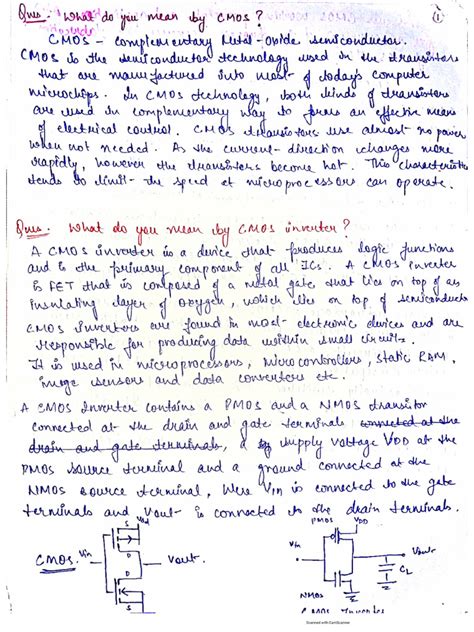 Ques. What do you mean by CMOS?
(1)
CMOS - complementary Metal-Oxide semiconductor.
CMOS is the semiconductor technology used in the transistors
that are manufactured into most of today's computer
microchips. In CMOS technology, both kinds of transistors
are used in complementary way to form an effective means
of electrical control. CMOS transistors use almost no power
when not needed. As the current direction changes more
rapidly, however the transistors become hot. This characteristic
tends to limit the speed at microprocessors can operate.
Ques. What do you mean by CMOS inverter?
A CMOS inverter is a device that produces logic functions
and is the primary component of all ICs. A CMOS inverter
is FET that is composed of a metal gate that lies on top of an
insulating layer of oxygen, which lies on top of semiconductor
CMOS inverters are found in most electronic devices and are
responsible for producing data within small circuits.
It is used in microprocessors, Microcontrollers, static RAM,
image sensors and data converters etc.
A CMOS Inverter contains a PMOS and a NMOS transistor
connected at the drain and gate terminals connected at the
drain and gate terminals, a supply voltage VDD at the
PMOS source terminal and a ground connected at the
NMOS source terminal, Were VIN is connected to the gate
terminals and Vout is connected to the drain terminals.
CMOS. Vin S Vdd D D S Vout
Vin PMOS VDD Vout CL NMOS
Scanned with CamScanner